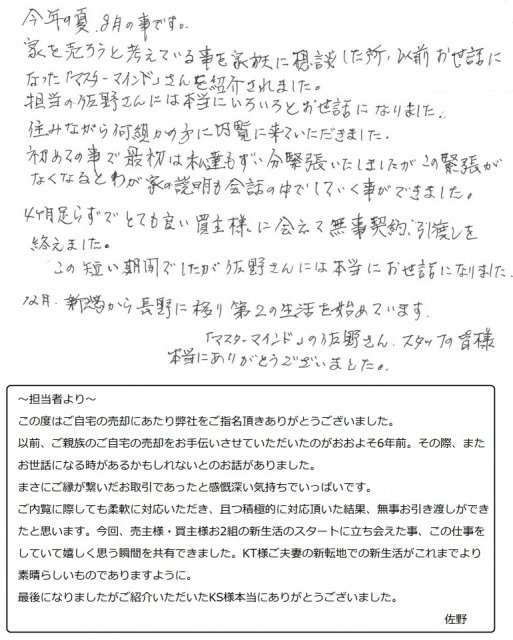 今年の夏、8月の事です。
家を売ろうと考えている事を家族に相談した所、以前お世話に
なった「マスターマインド」さんを紹介されました。
担当の佐野さんには本当にいろいろとお世話になりました。
住みながら何組かの方に内覧に来ていただきました。
初めての事で最初は私達もずい分緊張いたしましたがこの緊張が
なくなるとわが家の説明も会話の中でしていく事ができました。
4ヶ月足らずでとても良い買主様に会えて無事契約、引渡しを
終えました。
この短い期間でしたが佐野さんには本当にお世話になりました。
12月、新潟から長野に移り第2の生活を始めています。
「マスターマインド」の佐野さん、スタッフの皆様
本当にありがとうございました。
～担当者より～
この度はご自宅の売却にあたり弊社をご指名頂きありがとうございました。
以前、ご親族のご自宅の売却をお手伝いさせていただいたのがおおよそ6年前。その際、また
お世話になる時があるかもしれないとのお話がありました。
まさにご縁が繋いだお取引であったと感慨深い気持ちでいっぱいです。
ご内覧に際しても柔軟に対応いただき、且つ積極的に対応頂いた結果、無事お引き渡しができ
たと思います。今回、売主様・買主様お2組の新生活のスタートに立ち会えた事、この仕事を
していて嬉しく思う瞬間を共有できました。KT様ご夫妻の新転地での新生活がこれまでより
素晴らしいものでありますように。
最後になりましたがご紹介いただいたKS様本当にありがとうございました。
佐野